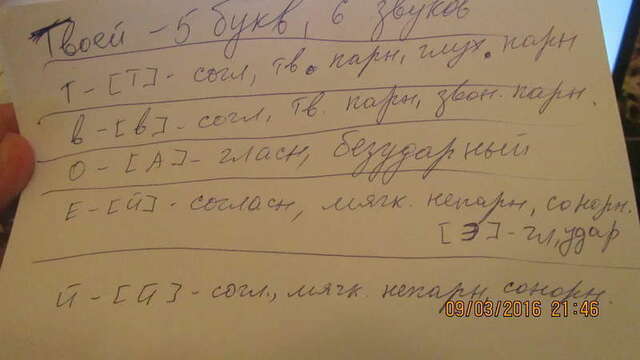 Твоей - 5 букв, 6 звуков
Т - [Т] - согл, тв. парн, глух. парн
В - [В] - согл, тв. парн, звон. парн.
О - [А] - гласн, безударный
Е - [Й] - согласн, мягк. непарн, сонорн.
[Э] - гл, удар
Й - [Й] - согл., мягк. непарн, сонорн.
09/03/2016 21:46